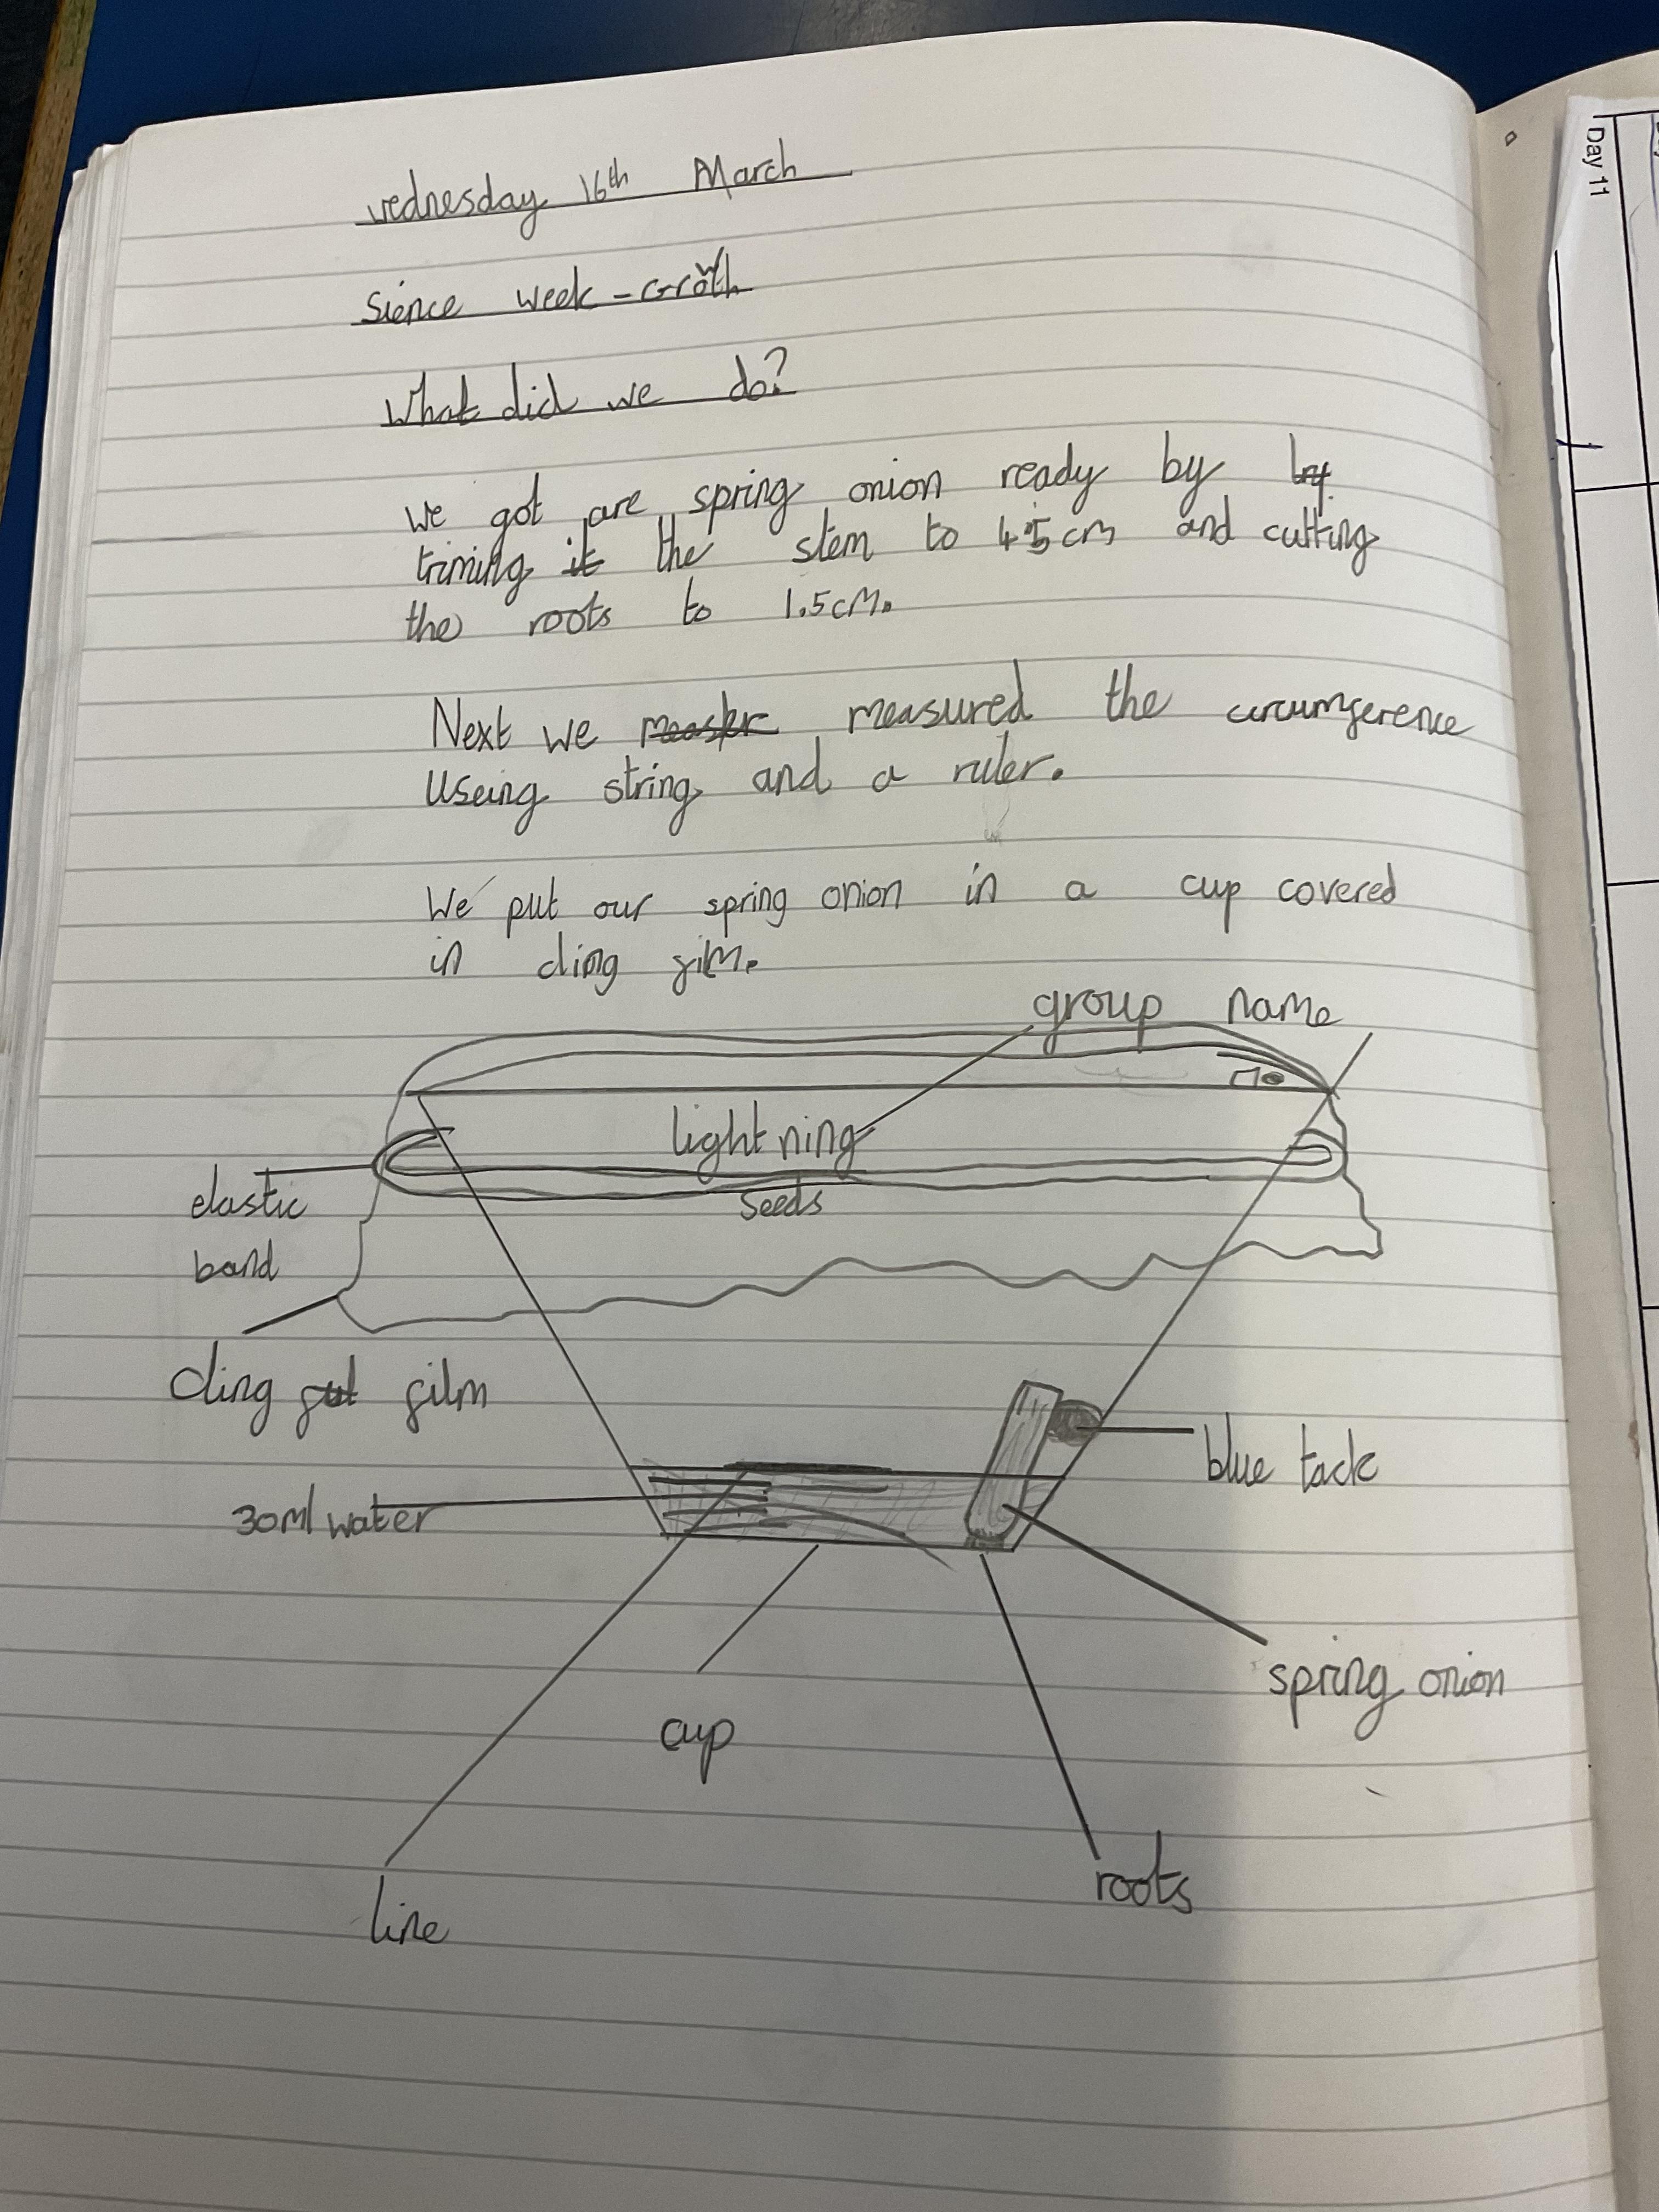 wednesday 16th March
Sience week - Growth
What did we do?
We got are spring onion ready by
triming it the stem to 4.5cm and cutting
the roots to 1.5cm.
Next we measured the circumference
Useing string and a ruler.
We put our spring onion in a cup covered
in cling film.
group name
lightning
Seeds
elastic
band
cling film
blue tack
30ml water
spring onion
cup
roots
line
Day 11